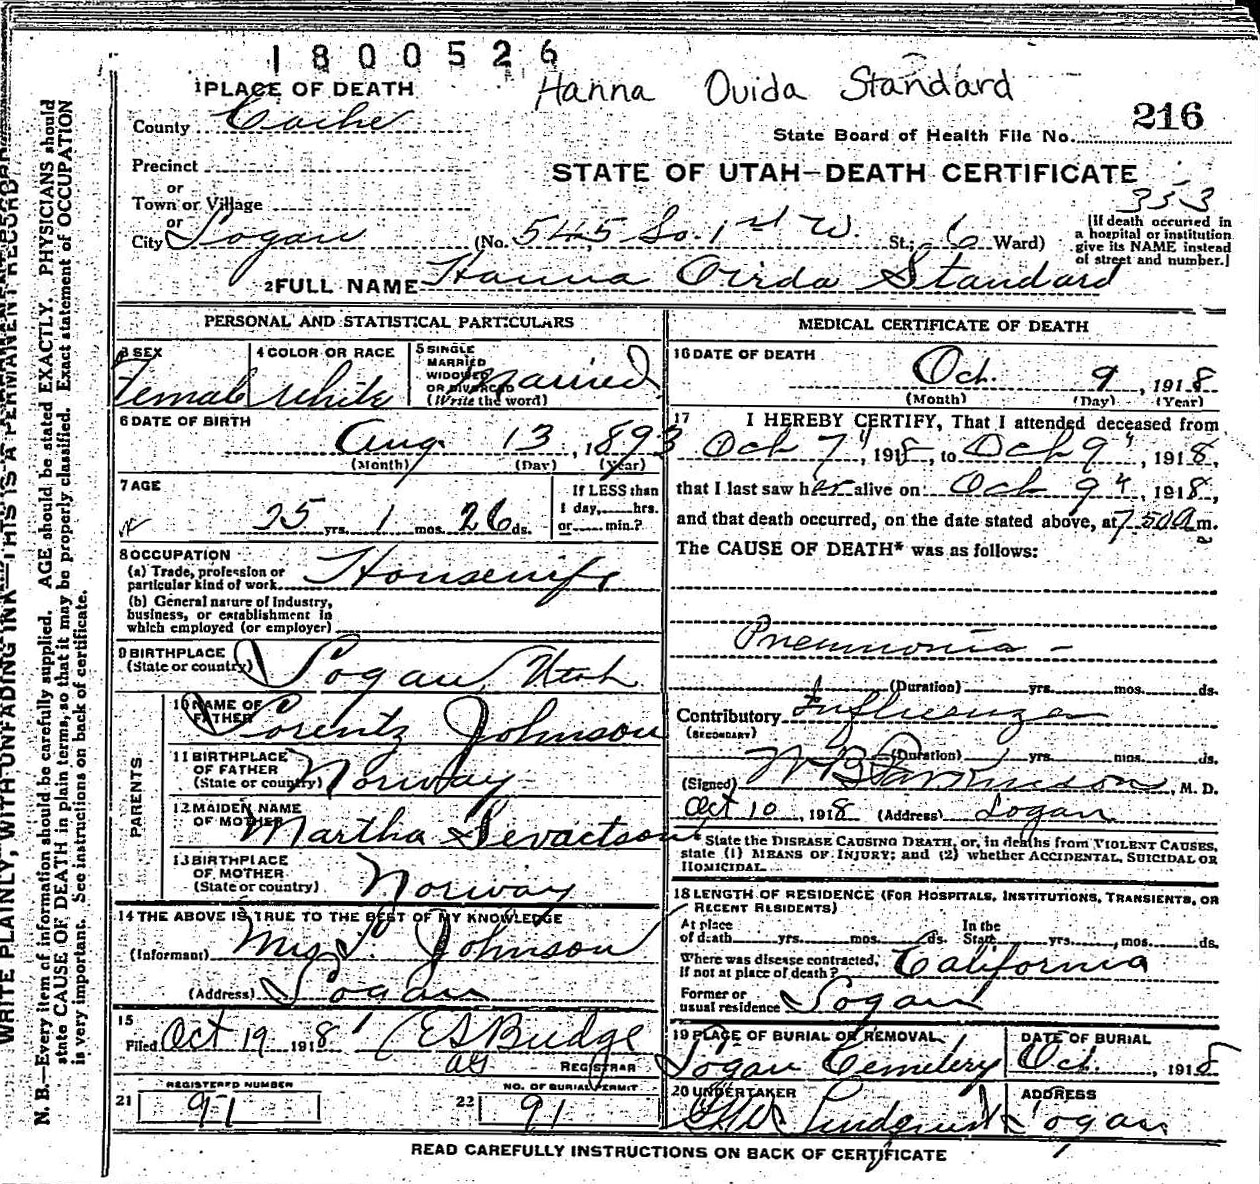 1800526
Hanna Ouida Standard
1 PLACE OF DEATH
County Cache
State Board of Health File No. 216
Precinct
STATE OF UTAH—DEATH CERTIFICATE
or
Town or Village
353
or
City Logan (No. 545 So. 1st W. St.; 6 Ward)
[If death occurred in a hospital or institution give its NAME instead of street and number.]
2 FULL NAME Hanna Ouida Standard
PERSONAL AND STATISTICAL PARTICULARS
3 SEX
Female
4 COLOR OR RACE
White
5 SINGLE
MARRIED
WIDOWED
OR DIVORCED
(Write the word)
Married
6 DATE OF BIRTH
Aug. 13, 1893
(Month) (Day) (Year)
7 AGE
25 yrs. 1 mos. 26 ds.
If LESS than
1 day, hrs.
or min.?
8 OCCUPATION
(a) Trade, profession or
particular kind of work Housewife
(b) General nature of Industry,
business, or establishment in
which employed (or employer)
9 BIRTHPLACE
(State or country) Logan Utah
PARENTS
10 NAME OF
FATHER Lorentz Johnson
11 BIRTHPLACE
OF FATHER
(State or country) Norway
12 MAIDEN NAME
OF MOTHER Martha
13 BIRTHPLACE
OF MOTHER
(State or country) Norway
14 THE ABOVE IS TRUE TO THE BEST OF MY KNOWLEDGE
(Informant) Mrs. Johnson
(Address) Logan
15
Filed Oct 19 1918 E S Budge
REGISTRAR
REGISTERED NUMBER
21 91
NO. OF BURIAL PERMIT
22 91
MEDICAL CERTIFICATE OF DEATH
16 DATE OF DEATH
Oct. 9, 1918
(Month) (Day) (Year)
17 I HEREBY CERTIFY, That I attended deceased from
Oct 7", 1918, to Oct 9", 1918,
that I last saw her alive on Oct 9", 1918,
and that death occurred, on the date stated above, at 7.50 A m.
The CAUSE OF DEATH* was as follows:
Pneumonia -
(Duration) yrs. mos. ds.
Contributory Influenza
(SECONDARY)
(Duration) yrs. mos. ds.
(Signed) W B Parkinson, M. D.
Oct 10, 1918 (Address) Logan
* State the DISEASE CAUSING DEATH, or, in deaths from VIOLENT CAUSES,
state (1) MEANS OF INJURY; and (2) whether ACCIDENTAL, SUICIDAL OR
HOMICIDAL.
18 LENGTH OF RESIDENCE (FOR HOSPITALS, INSTITUTIONS, TRANSIENTS, OR
RECENT RESIDENTS)
At place
of death yrs. mos. ds.
In the
State yrs. mos. ds.
Where was disease contracted,
if not at place of death? California
Former or
usual residence Logan
19 PLACE OF BURIAL OR REMOVAL
Logan Cemetery
DATE OF BURIAL
Oct. , 1918
20 UNDERTAKER
Lindquist
ADDRESS
Logan
READ CAREFULLY INSTRUCTIONS ON BACK OF CERTIFICATE
WRITE PLAINLY, WITH UNFADING INK—THIS IS A PERMANENT RECORD
N. B.—Every item of information should be carefully supplied. AGE should be stated EXACTLY. PHYSICIANS should
state CAUSE OF DEATH in plain terms, so that it may be properly classified. Exact statement of OCCUPATION
is very important. See instructions on back of certificate.